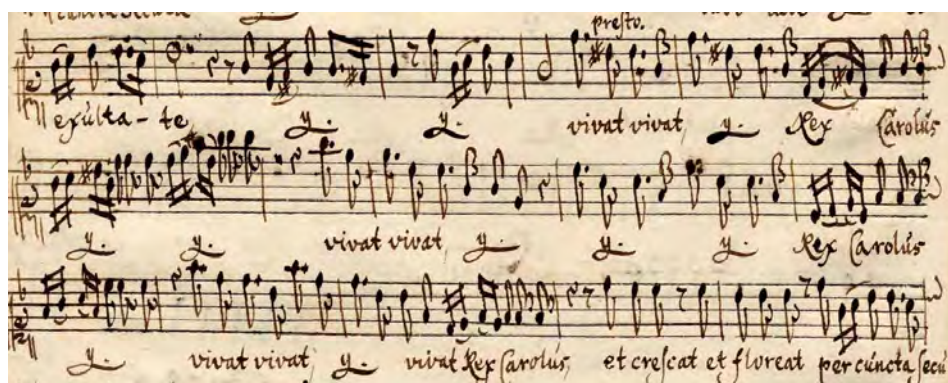 presto.
exulta-te y. y. vivat vivat, y. Rex Carolus
y. y. vivat vivat, y. y. y. Rex Carolus
y. vivat vivat, y. vivat Rex Carolus, et crescat et floreat per cuncta secu